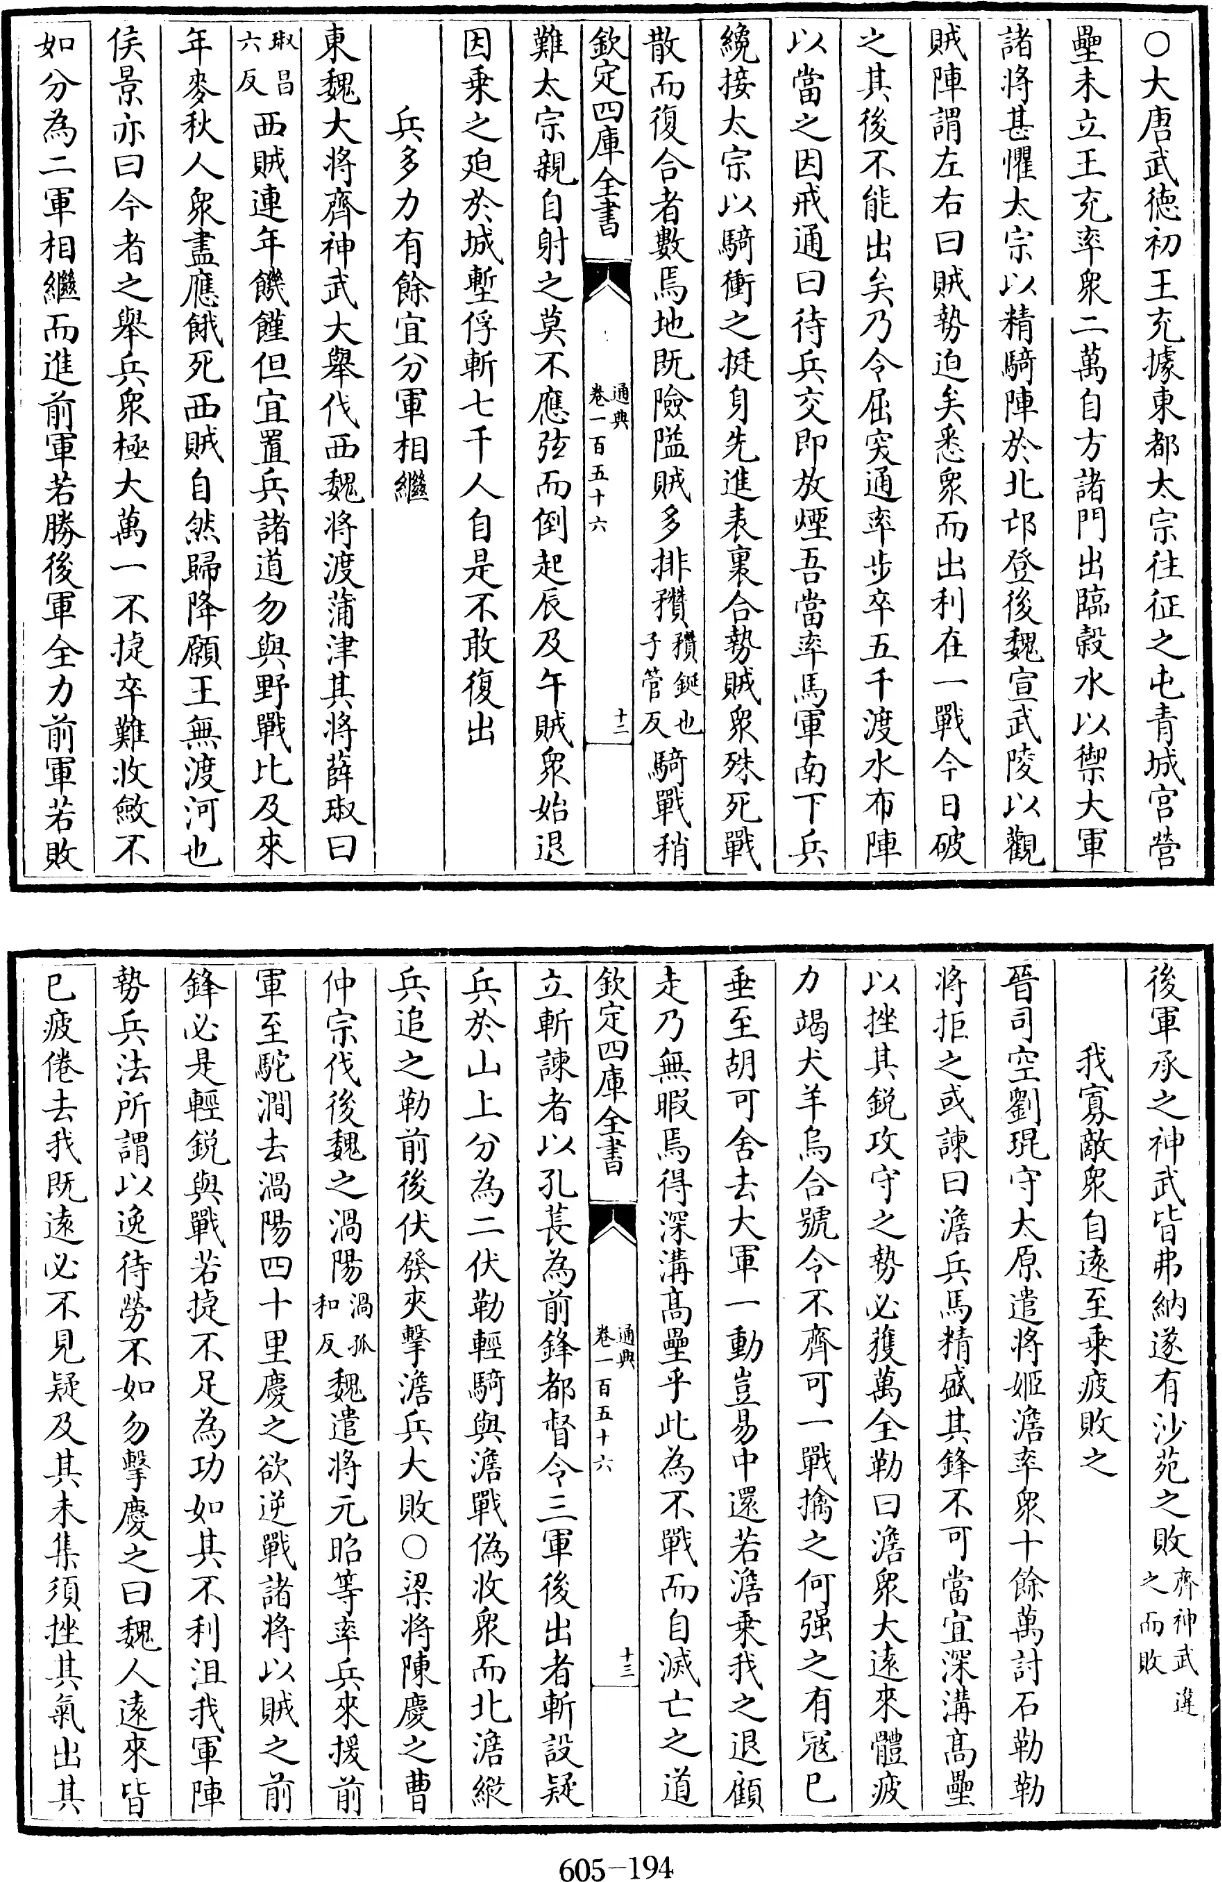 ○大唐武德初王充據東都太宗往征之屯青城宮營
壘未立王充率衆二萬自方諸門出臨穀水以禦大軍
諸將甚懼太宗以精騎陣於北邙登後魏宣武陵以觀
賊陣謂左右曰賊勢迫矣悉衆而出利在一戰今日破
之其後不能出矣乃令屈突通率步卒五千渡水布陣
以當之因戒通曰待兵交即放煙吾當率馬軍南下兵
纔接太宗以騎衝之挺身先進表裏合勢賊衆殊死戰
散而復合者數焉地既險隘賊多排穳穳鋌也子管反騎戰稍
欽定四庫全書
通典
卷一百五十六
十二
難太宗親自射之莫不應弦而倒起辰及午賊衆始退
因乗之廹於城塹俘斬七千人自是不敢復出
兵多力有餘宜分軍相繼
東魏大将齊神武大舉伐西魏将渡蒲津其将薛琡曰
琡昌六反西賊連年饑饉但宜置兵諸道勿與野戰比及來
年麥秋人衆盡應餓死西賊自然歸降願王無渡河也
侯景亦曰今者之舉兵衆極大萬一不捷卒難收斂不
如分為二軍相繼而進前軍若勝後軍全力前軍若敗
後軍承之神武皆弗納遂有沙苑之敗齊神武違之而敗
我寡敵衆自逺至乗疲敗之
晉司空劉琨守太原遣将姬澹率衆十餘萬討石勒勒
将拒之或諫曰澹兵馬精盛其鋒不可當宜深溝髙壘
以挫其鋭攻守之勢必獲萬全勒曰澹衆大逺來體疲
力竭犬羊烏合號令不齊可一戰擒之何强之有冦已
垂至胡可舍去大軍一動豈易中還若澹乗我之退顧
走乃無暇焉得深溝髙壘乎此為不戰而自滅亡之道
欽定四庫全書
通典
卷一百五十六
十三
立斬諫者以孔萇為前鋒都督令三軍後出者斬設疑
兵於山上分為二伏勒輕騎與澹戰偽收衆而北澹縱
兵追之勒前後伏發夾擊澹兵大敗○梁将陳慶之曹
仲宗伐後魏之渦陽渦孤和反魏遣将元昭等率兵來援前
軍至駝澗去渦陽四十里慶之欲逆戰諸将以賊之前
鋒必是輕鋭與戰若捷不足為功如其不利沮我軍陣
勢兵法所謂以逸待勞不如勿擊慶之曰魏人逺來皆
已疲倦去我既逺必不見疑及其未集須挫其氣出其
605-194